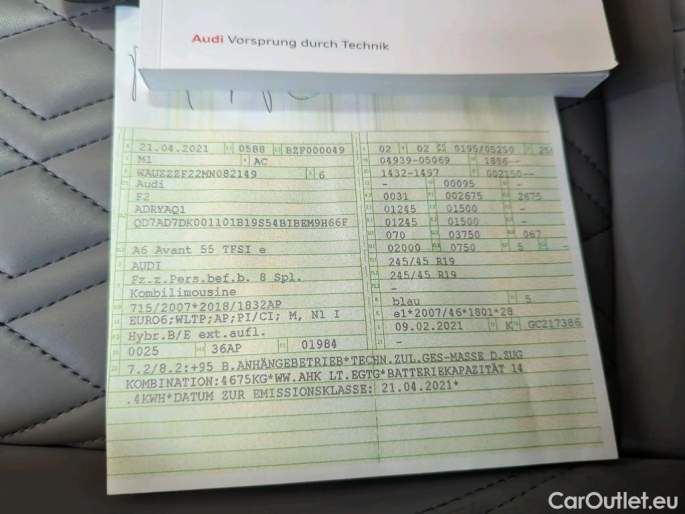 Audi Vorsprung durch Technik
21.04.2021 0588 BZF000049 02 02 0195/05250
M1 AC 04939-05069 1886--
WAUZZZF22MN082149 6 1432-1497 002150--
Audi - 00095 -
F2 0031 002675 2675
ADRYAQ1 01245 01500 -
QD7AD7DK001101B19S54BIBEM9H66F 01245 01500 -
070 03750 067
A6 Avant 55 TFSI e 02000 0750 5 -
AUDI 245/45 R19
Fz.z.Pers.bef.b. 8 Spl. 245/45 R19
Kombilimousine -
715/2007*2018/1832AP blau 5
EURO6;WLTP;AP;PI/CI; M, N1 I e1*2007/46*1801*28
Hybr.B/E ext.aufl. 09.02.2021 K GC217386
0025 36AP 01984
7.2/8.2:+95 B.ANHÄNGEBETRIEB*TECHN.ZUL.GES-MASSE D.ZUG
KOMBINATION:4675KG*WW.AHK LT.EGTG*BATTERIEKAPAZITÄT 14
.4KWH*DATUM ZUR EMISSIONSKLASSE: 21.04.2021*
CarOutlet.eu